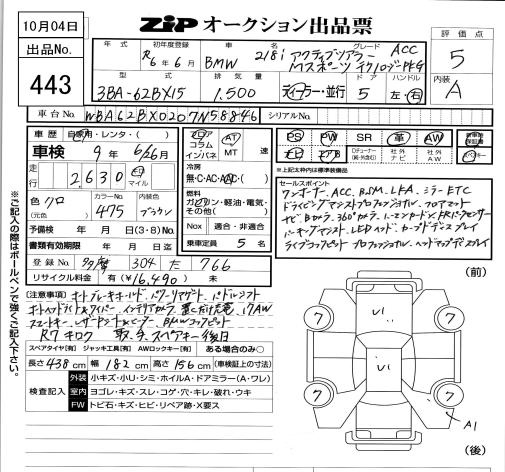 10月04日
ZIP オークション出品票
出品No.
443
評価点
5
内装
A
年式 初年度登録 車名 グレード
R6年6月 BMW 218i アクティブツアラー ACC
Mスポーツ テクノロジーPKG
型式 排気量 ドア ハンドル
3BA-62BX15 1.500 ディーラー・並行 5 左・右
車台No. WBA62BX0207N58846 シリアルNo.
車歴 自家用・レンタ・( )
車検 9年 6/26月
走行 2,630 キロ マイル
色 クロ (元色) カラーNo. 475 内装色 ブラウン
予備検 年 月 日(3・8)
書類有効期限 年 月 日
登録No. 多摩 304 た 766
リサイクル料金 有(¥16,490) 未
フロア コラム インパネ AT MT 速
冷房
無・C・AC・AAC・( )
燃料
ガソリン・軽油・電気・その他( )
Nox 適合・非適合
乗車定員 5 名
PS PW SR 革 AW
ナビ エアB Dチューナー(純・外含む) 社外ナビ 社外AW
※上記太枠は標準装備品
セールスポイント
ワンオーナー、ACC、BSM、LFA、ミラーETC
ドライビングアシストプロフェッショナル、フロアマット
ナビBカメラ、360カメラ
パーキングアシスト LEDヘッド カーブドディスプレイ
ライブコックピット プロフェッショナル、ヘッドアップディスプレイ
[注意事項] オートブレーキホールド パワーリアゲート パドルシフト
オートヘッドライト&ワイパー 置くだけ充電 17AW
スマートキー レザーシート&ヒーター BMWコックピット
R7 キロク 取、手、スペアキー後日
スペアタイヤ[有] ジャッキ工具[有] AWロックキー[有] ある場合のみ○
長さ438cm 幅182cm 高さ156cm (車検証上の寸法)
検査記入
外装 小キズ・小U・シミ・ホイルA・ドアミラー(A・ワレ)
室内 ヨゴレ・キズ・スレ・コゲ・穴・キレ・破れ・ウキ
FW トビ石・キズ・ヒビ・リペア跡・X要ス
(前)
7
7
7
7
A1
(後)
※ご記入の際はボールペンで強くご記入下さい。